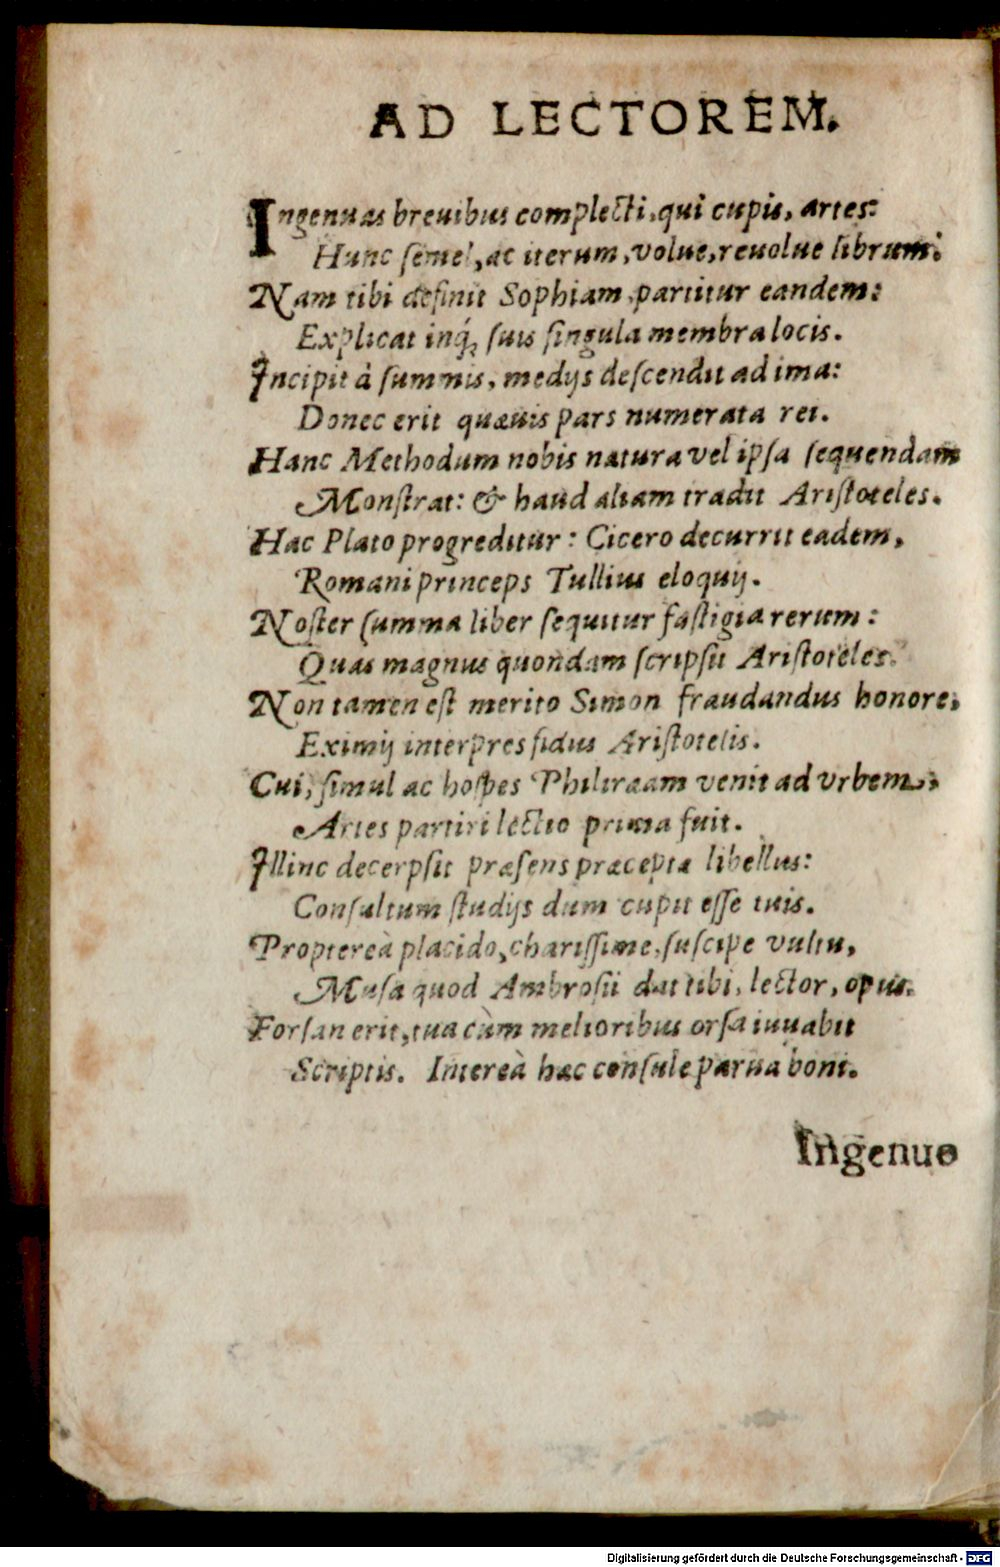 AD LECTOREM.
Ingenuas breuibus complecti, qui cupis, artes:
Hunc semel, ac iterum, volue, reuolue librum.
Nam tibi definit Sophiam, partitur eandem:
Explicat inq́; suis singula membra locis.
Incipit à summis, medijs descendit ad ima:
Donec erit quæuis pars numerata rei.
Hanc Methodum nobis natura vel ipsa sequendam
Monstrat: & haud aliam tradit Aristoteles.
Hac Plato progreditur: Cicero decurrit eadem,
Romani princeps Tullius eloquij.
Noster summa liber sequitur fastigia rerum:
Quas magnus quondam scripsit Aristoteles.
Non tamen est merito Simon fraudandus honore,
Eximij interpres fidus Aristotelis.
Cui, simul ac hospes Philiraam venit ad vrbem,
Artes partiri lectio prima fuit.
Illinc decerpsit præsens præcepta libellus:
Consultum studijs dum cupit esse tuis.
Propterea placido, charissime, suscipe vultu,
Musa quod Ambrosii dat tibi, lector, opus.
Forsan erit, tua cùm melioribus orsa iuuabit
Scriptis. Intereà hæc consule parua boni.
Ingenuo
Digitalisierung gefördert durch die Deutsche Forschungsgemeinschaft - DFG